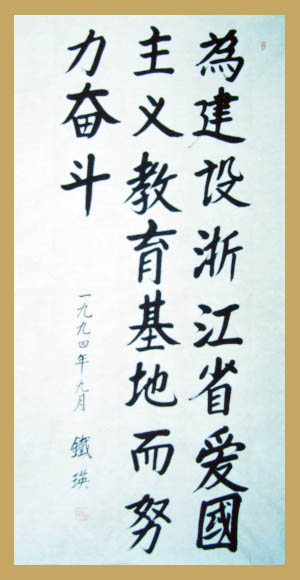 為建设浙江省爱國
主义教育基地而努
力奋斗
一九九四年九月
鐵瑛